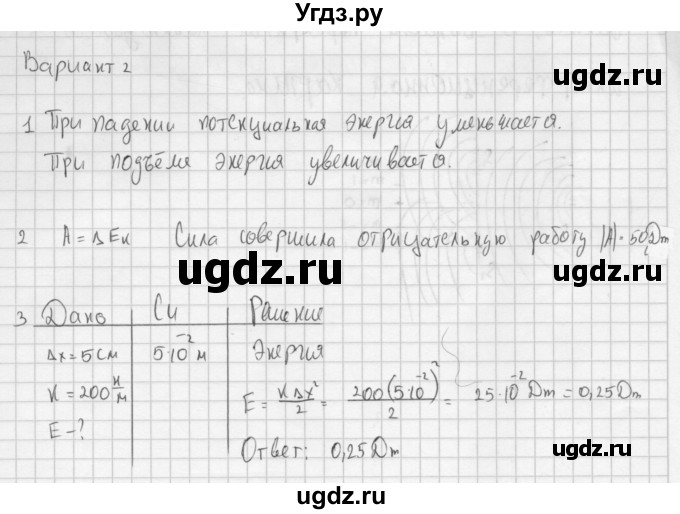 Угдз.ру
Вариант 2
ugdz.ru
ugdz.ru
1 При падении потенциальная энергия уменьшается.
При подъёме энергия увеличивается.
ugdz.ru
ugdz.ru
2 A = ΔEк Сила совершила отрицательную работу |A|=50Дж
ugdz.ru
ugdz.ru
3 Дано Си Решение
Δx = 5см 5·10⁻² м Энергия
K = 200 н/м E = KΔx²/2 = 200(5·10⁻²)²/2 = 25·10⁻² Дж = 0,25 Дж
E - ?
Ответ: 0,25 Дж
ugdz.ru
ugdz.ru
ugdz.ru